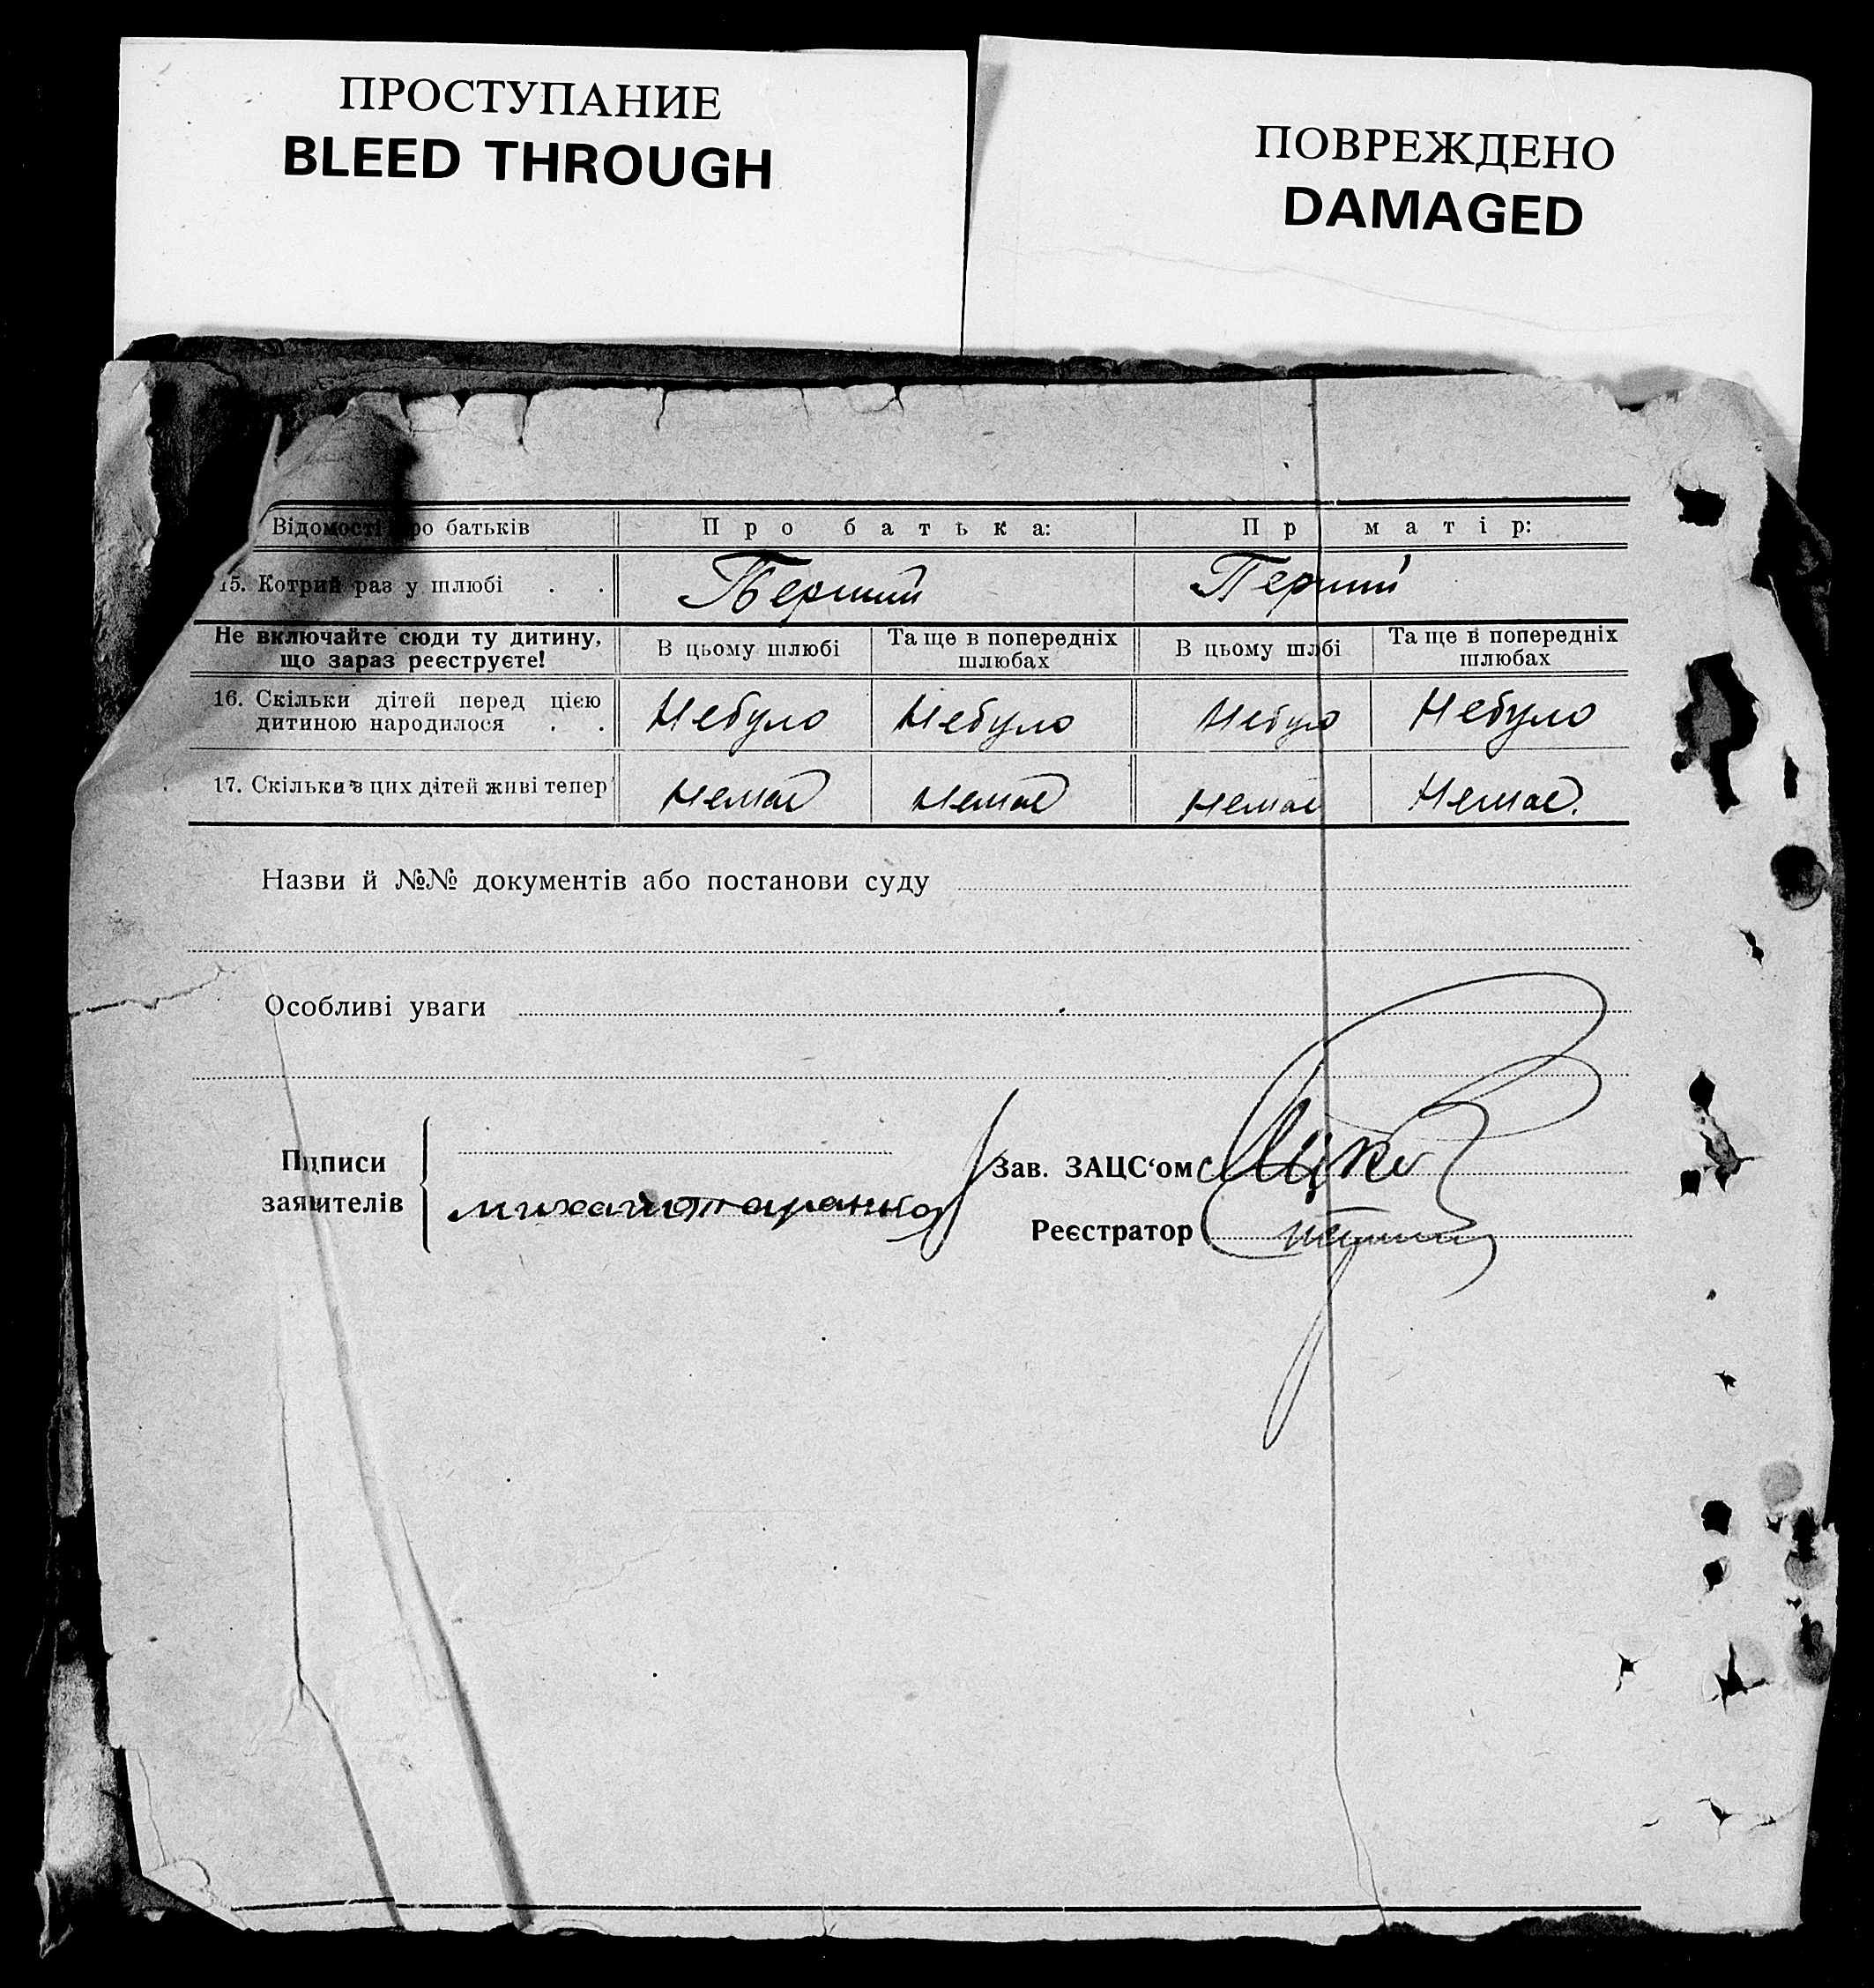 ПРОСТУПАНИЕ
BLEED THROUGH
ПОВРЕЖДЕНО
DAMAGED
Відомості про батьків Про батька: Пр матір:
15. Котрий раз у шлюбі . . Перший Перший
Не включайте сюди ту дитину, що зараз реєструєте! В цьому шлюбі Та ще в попередніх шлюбах В цьому шлбі Та ще в попередніх шлюбах
16. Скільки дітей перед цією
дитиною народилося . . Небуло Небуло Небуло Небуло
17. Скільки з цих дітей живі тепер Немає Немає Немає Немає.
Назви й №№ документів або постанови суду
Особливі уваги
Підписи
заявителів
михайло таранно
Зав. ЗАЦС‘ом
Реєстратор